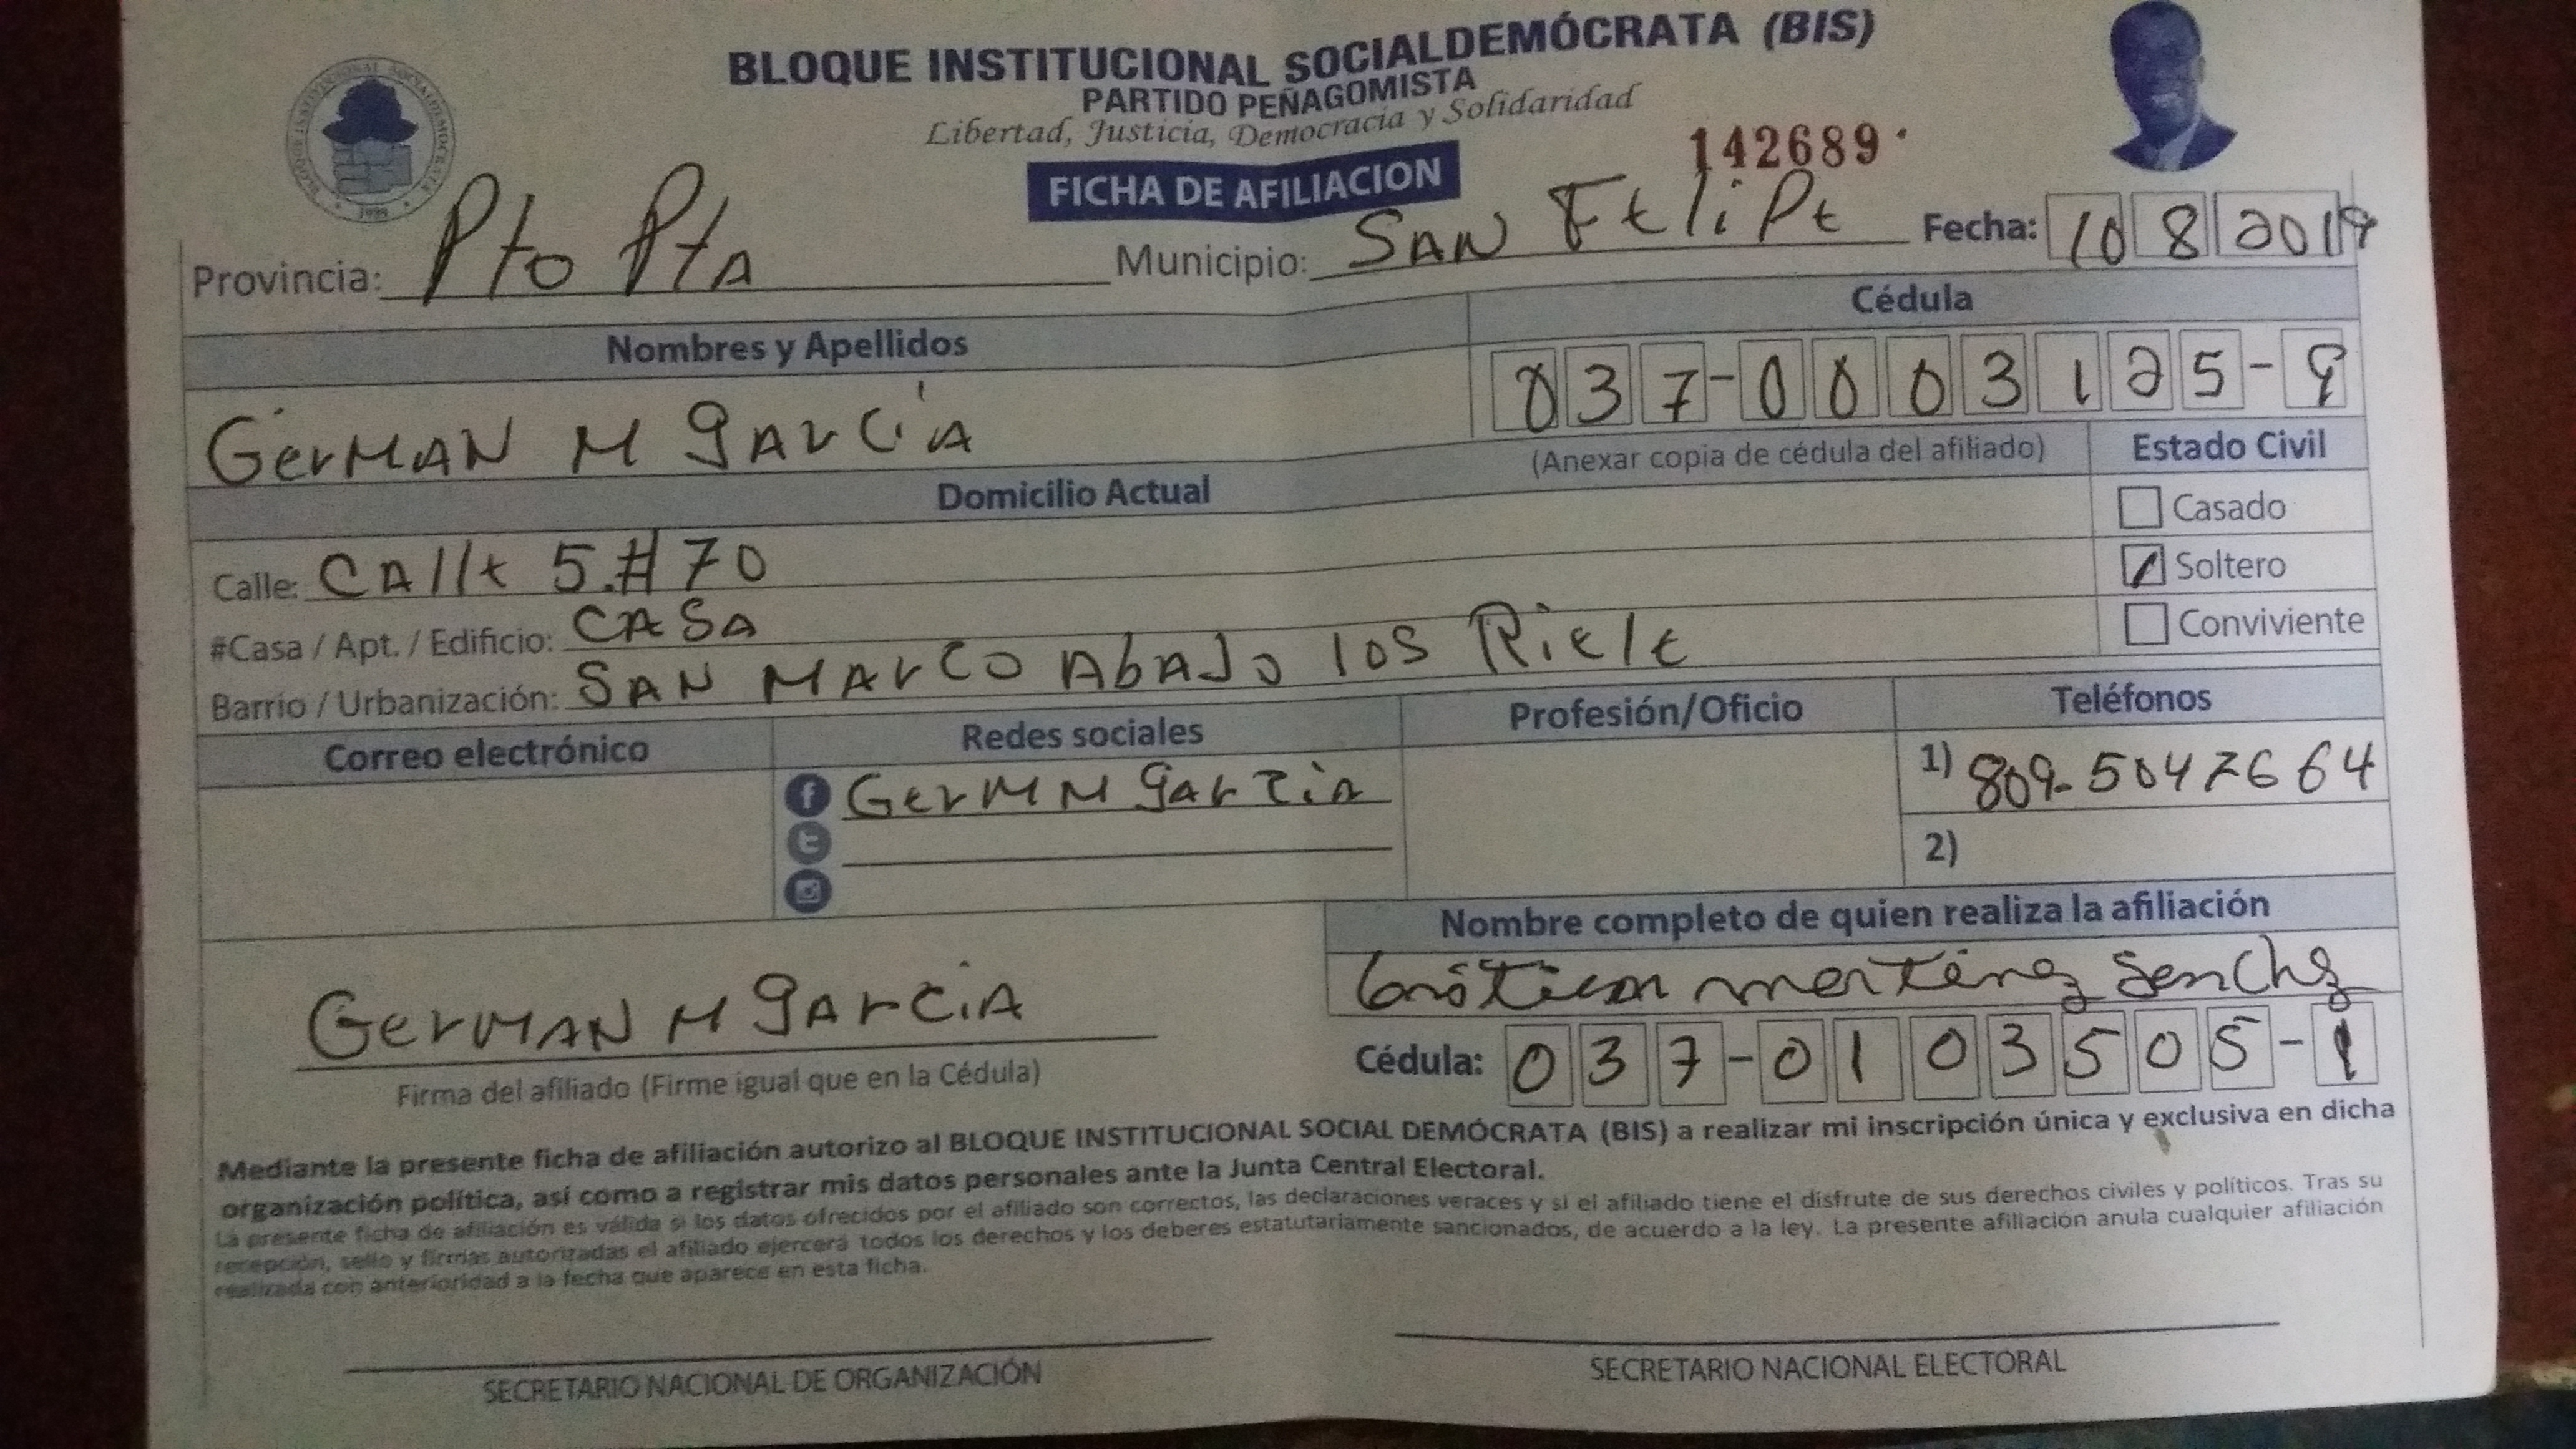 BLOQUE INSTITUCIONAL SOCIALDEMÓCRATA (BIS)
PARTIDO PEÑAGOMISTA
Libertad, Justicia, Democracia y Solidaridad
142689
FICHA DE AFILIACION
Provincia: Pto PtA Municipio: SAN FELiPE Fecha: 10 8 2019
Nombres y Apellidos Cédula
GerMAN M gArCíA 037-0003125-9
(Anexar copia de cédula del afiliado) Estado Civil
Domicilio Actual
Casado
Calle: CAllE 5.#70
Soltero
#Casa / Apt. / Edificio: CASA
Conviviente
Barrio / Urbanización: SAN MArCO AbAJO los RiElE
Correo electrónico Redes sociales Profesión/Oficio Teléfonos
GerMN M garCia 1) 809-5047664
2)
Nombre completo de quien realiza la afiliación
martinez
GerMAN M gArCiA
Cédula: 037-0103505-1
Firma del afiliado (Firme igual que en la Cédula)
Mediante la presente ficha de afiliación autorizo al BLOQUE INSTITUCIONAL SOCIAL DEMÓCRATA (BIS) a realizar mi inscripción única y exclusiva en dicha
organización política, así como a registrar mis datos personales ante la Junta Central Electoral.
La presente ficha de afiliación es válida si los datos ofrecidos por el afiliado son correctos, las declaraciones veraces y si el afiliado tiene el disfrute de sus derechos civiles y políticos. Tras su
recepción, sello y firmas autorizadas el afiliado ejercerá todos los derechos y los deberes estatutariamente sancionados, de acuerdo a la ley. La presente afiliación anula cualquier afiliación
realizada con anterioridad a la fecha que aparece en esta ficha.
SECRETARIO NACIONAL DE ORGANIZACIÓN SECRETARIO NACIONAL ELECTORAL